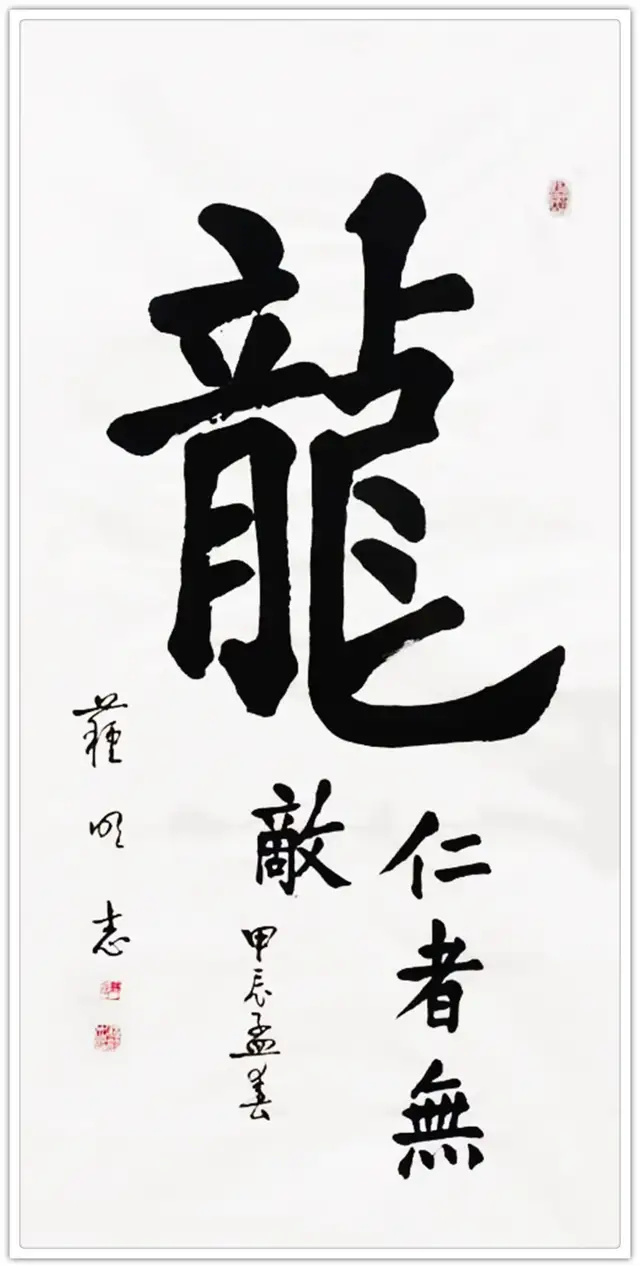 龍
仁者無
敵
甲辰孟春
明志